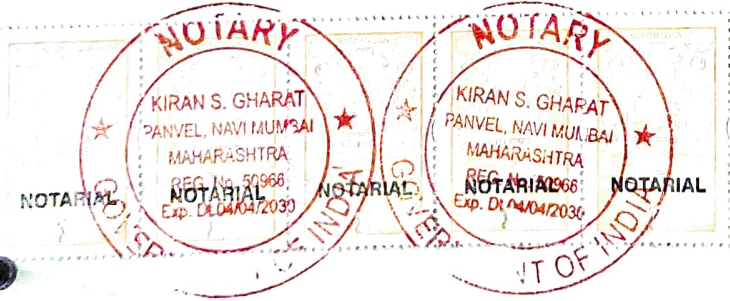 NOTARY
KIRAN S. GHARAT
PANVEL, NAVI MUMBAI
MAHARASHTRA
REG. No. 50966
Exp. Dt.04/04/2030
INDIA
NOTARY
KIRAN S. GHARAT
PANVEL, NAVI MUMBAI
MAHARASHTRA
REG. No. 50966
Exp. Dt.04/04/2030
OF INDIA
NOTARIAL NOTARIAL NOTARIAL NOTARIAL NOTARIAL